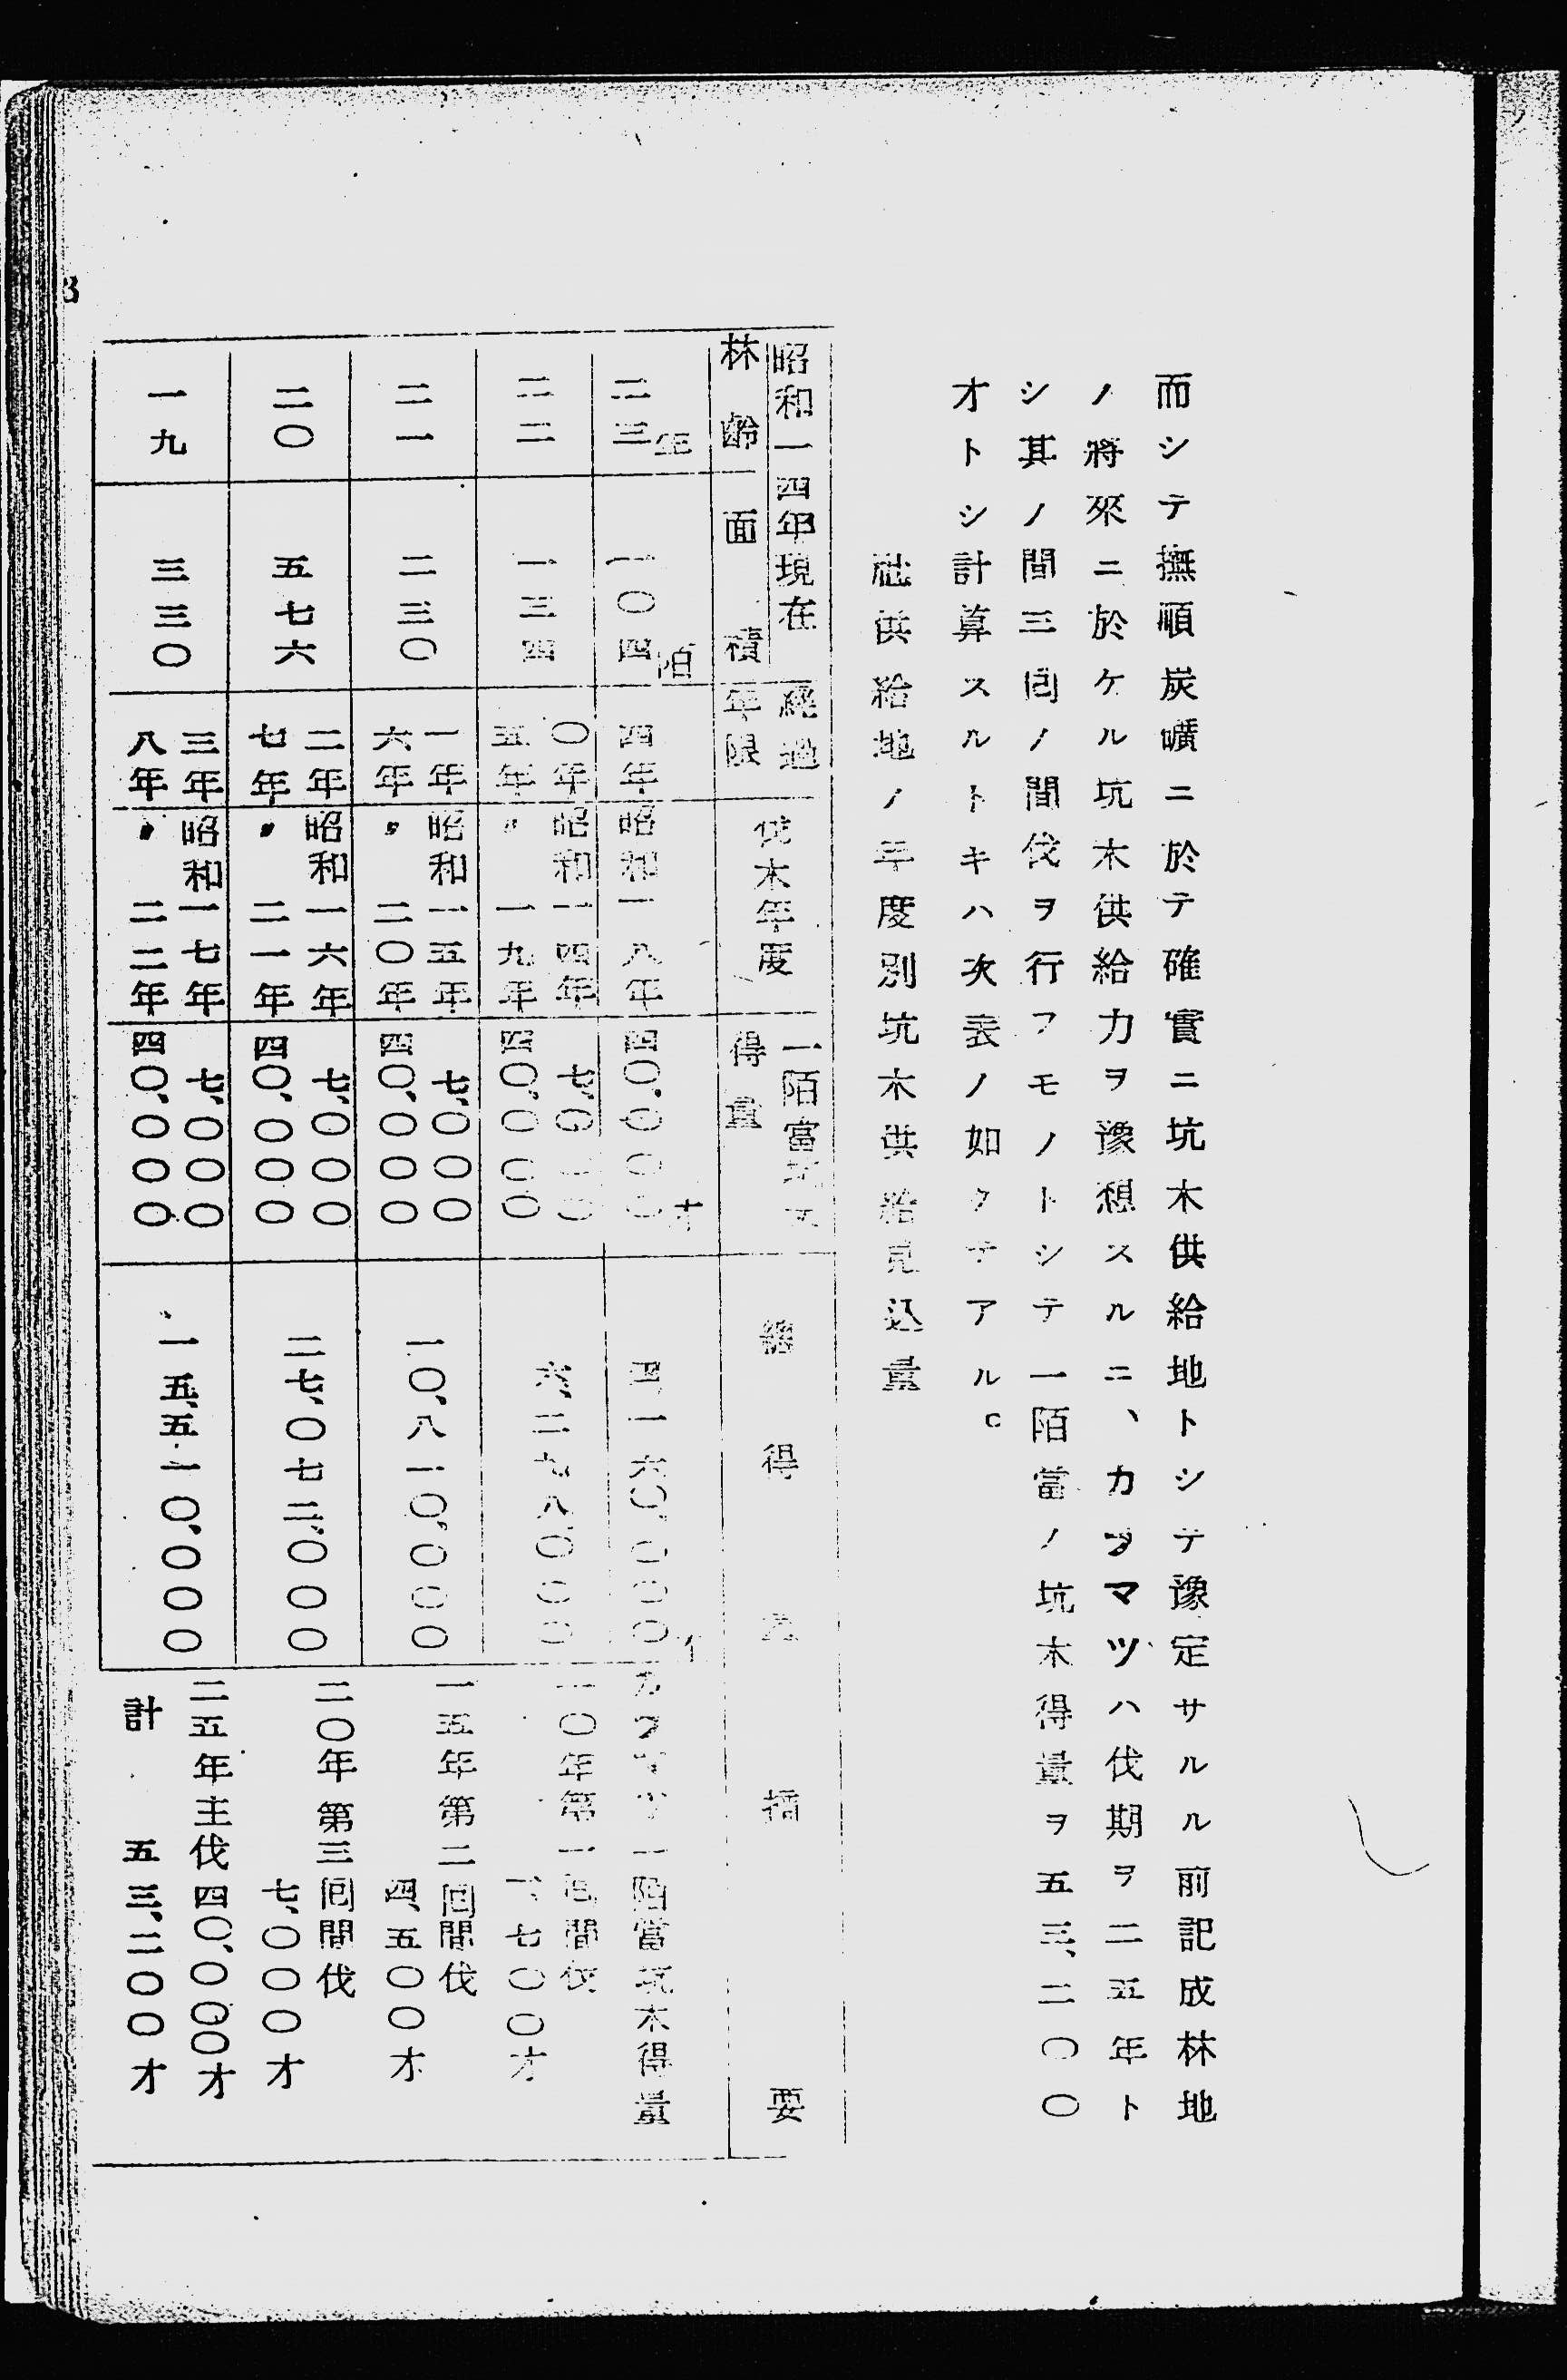 而シテ撫順炭礦ニ於テ確實ニ坑木供給地トシテ豫定サルル前記成林地
ノ將來ニ於ケル坑木供給力ヲ豫想スルニ、カラマツハ伐期ヲ二五年ト
シ其ノ間三囘ノ間伐ヲ行フモノトシテ一陌當ノ坑木得量ヲ五三、二〇〇
才トシ計算スルトキハ次表ノ如クデアル。
社供給地ノ年度別坑木供給見込量
昭和一四年現在
林齡
面積
經過
年限
伐木年度
一陌當坑木
得量
總得量
摘要
二三年
一〇四陌
四年
昭和一八年
四〇、〇〇〇才
四、一六〇、〇〇〇才
カラマツ一陌當坑木得量
二二
一三四
〇年
五年
昭和一四年
〃一九年
七、〇〇〇
四〇、〇〇〇
六、二九八、〇〇〇
一〇年第一囘間伐
一、七〇〇才
二一
二三〇
一年
六年
昭和一五年
〃二〇年
七、〇〇〇
四〇、〇〇〇
一〇、八一〇、〇〇〇
一五年第二囘間伐
四、五〇〇才
二〇
五七六
二年
七年
昭和一六年
〃二一年
七、〇〇〇
四〇、〇〇〇
二七、〇七二、〇〇〇
二〇年第三囘間伐
七、〇〇〇才
一九
三三〇
三年
八年
昭和一七年
〃二二年
七、〇〇〇
四〇、〇〇〇
一五、五一〇、〇〇〇
二五年主伐四〇、〇〇〇才
計五三、二〇〇才